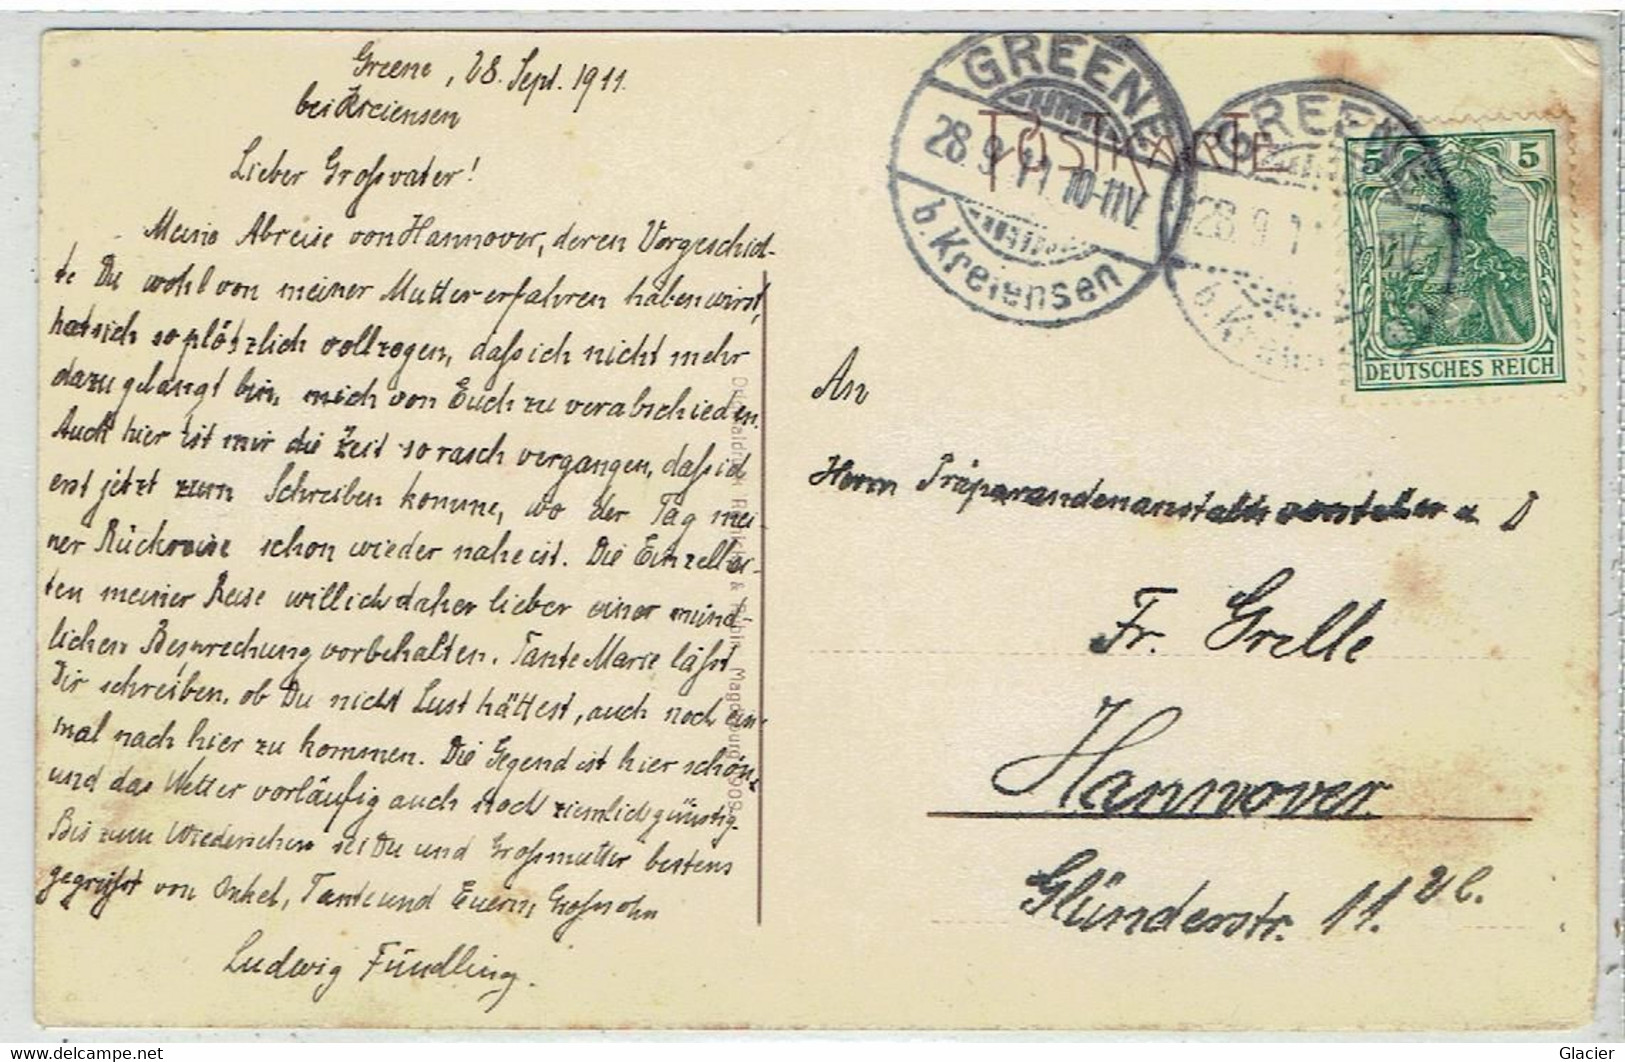 Greene, 28. Sept. 1911.
bei Kreiensen
Lieber Großvater!
Meine Abreise von Hannover, deren Vorgeschich-
te Du wohl von meiner Mutter erfahren haben wirst,
hat sich so plötzlich vollzogen, daß ich nicht mehr
dazu gelangt bin, mich von Euch zu verabschieden.
Auch hier ist mir die Zeit so rasch vergangen, daß ich
erst jetzt zum Schreiben komme, wo der Tag mei-
ner Rückreise schon wieder nahe ist. Die Einzelhei-
ten meiner Reise will ich daher lieber einer münd-
lichen Besprechung vorbehalten. Tante Marie läßt
Dir schreiben, ob Du nicht Lust hättest, auch noch ein-
mal nach hier zu kommen. Die Gegend ist hier schön,
und das Wetter vorläufig auch noch ziemlich günstig.
Bis zum Wiedersehen sei Du und Großmutter bestens
gegrüßt von Onkel, Tante und Eurem Großsohn
Ludwig Fündling.
Magdeburg 1909.
POSTKARTE
GREENE
28.9.11.10-11V.
b. Kreiensen
GREENE
28.9.1
b. Kreien
5 5
DEUTSCHES REICH
An
Herrn Präparandenanstaltsvorsteher a. D
Fr. Grelle
Hannover.
Glünderstr. 11.
Glacier
www.delcampe.net